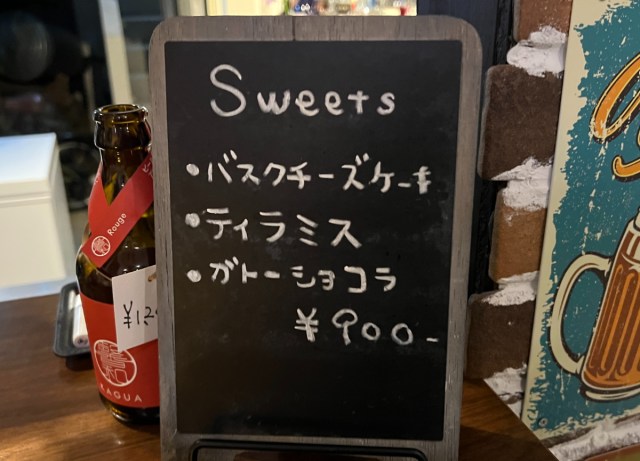 Sweets
・バスクチーズケーキ
・ティラミス
・ガトーショコラ
¥900-
Rouge
KAGUA